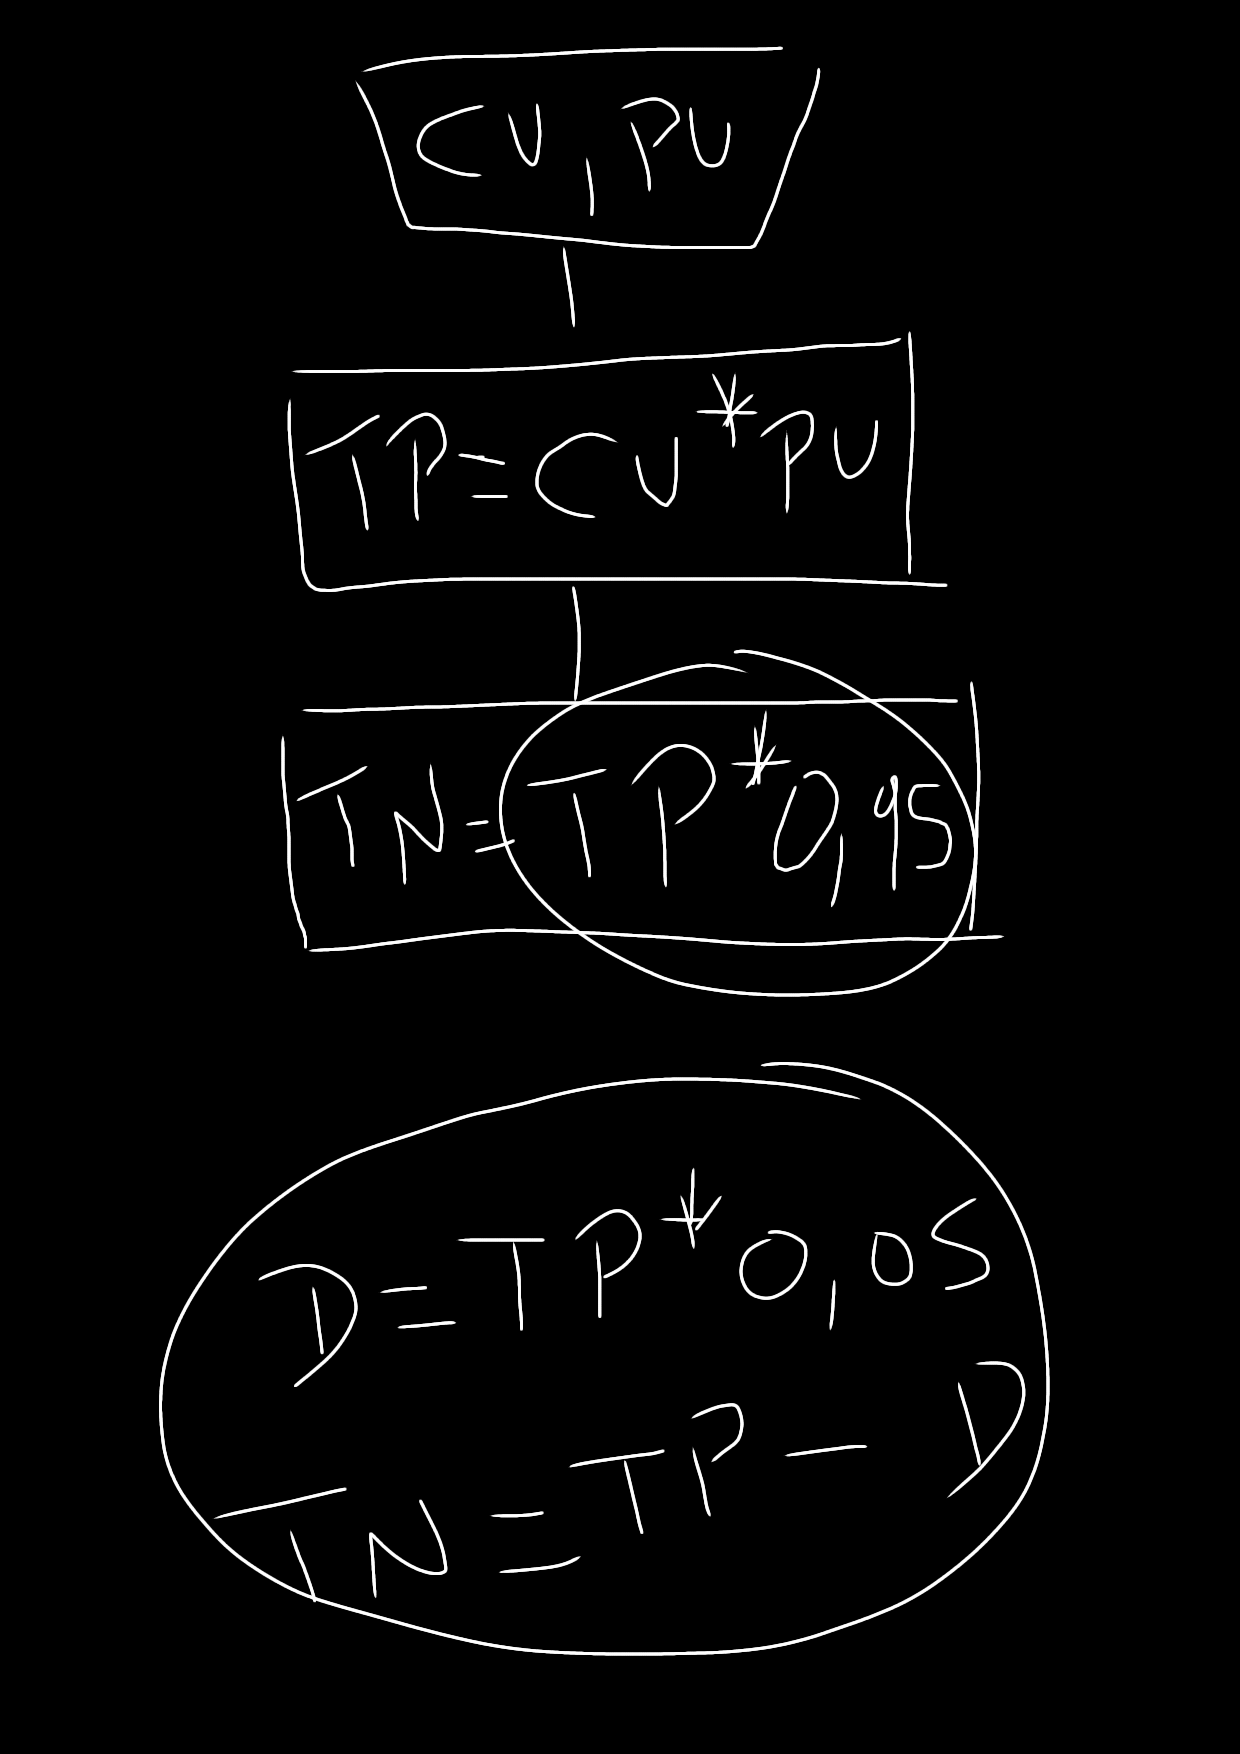 CU, PU
TP=CU*PU
TN=TP*0,95
D=TP*0,05
TN=TP-D